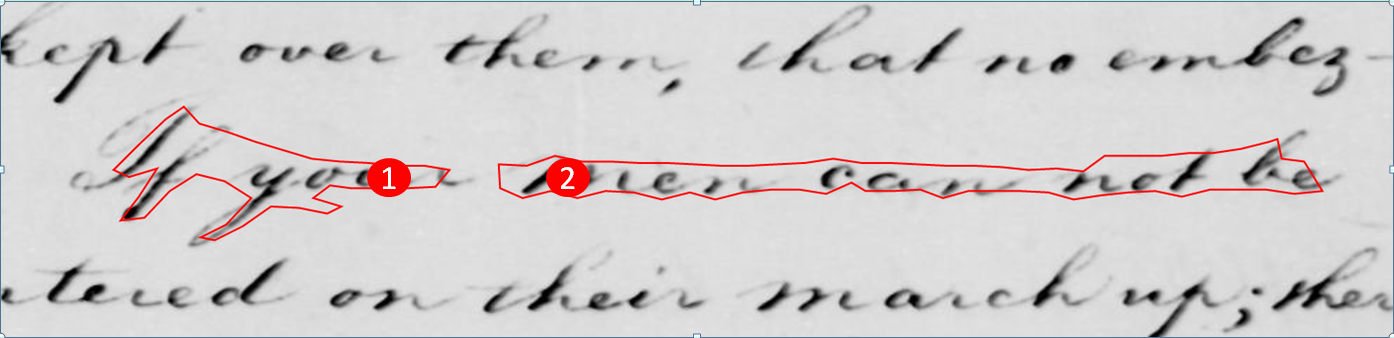 kept over them, that no embez-
If your men can not be
tered on their march up; ther
1
2